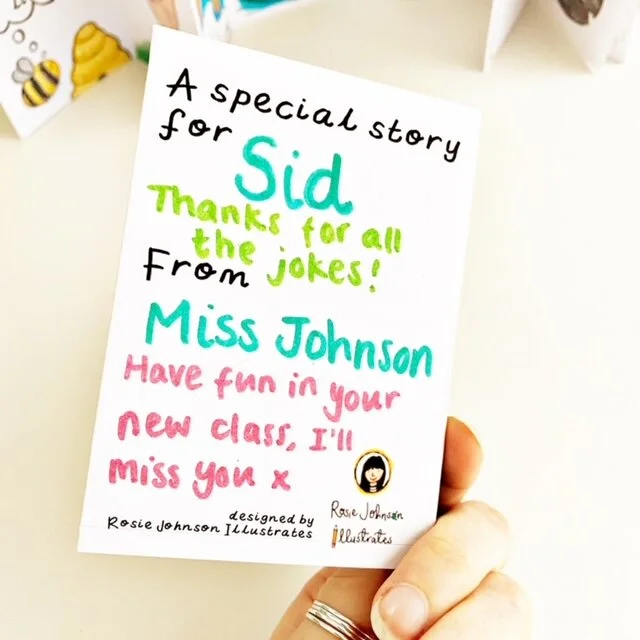 A special story
for Sid
Thanks for all
the jokes!
From
Miss Johnson
Have fun in your
new class, I'll
miss you x
designed by
Rosie Johnson Illustrates
Rosie Johnson
Illustrates